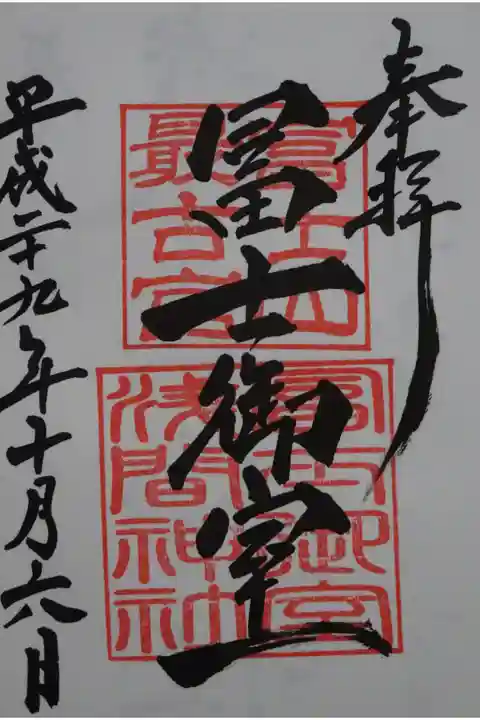 奉拝
冨士御室
富士山
最古宮
冨士御室
浅間神社
平成二十九年十月六日